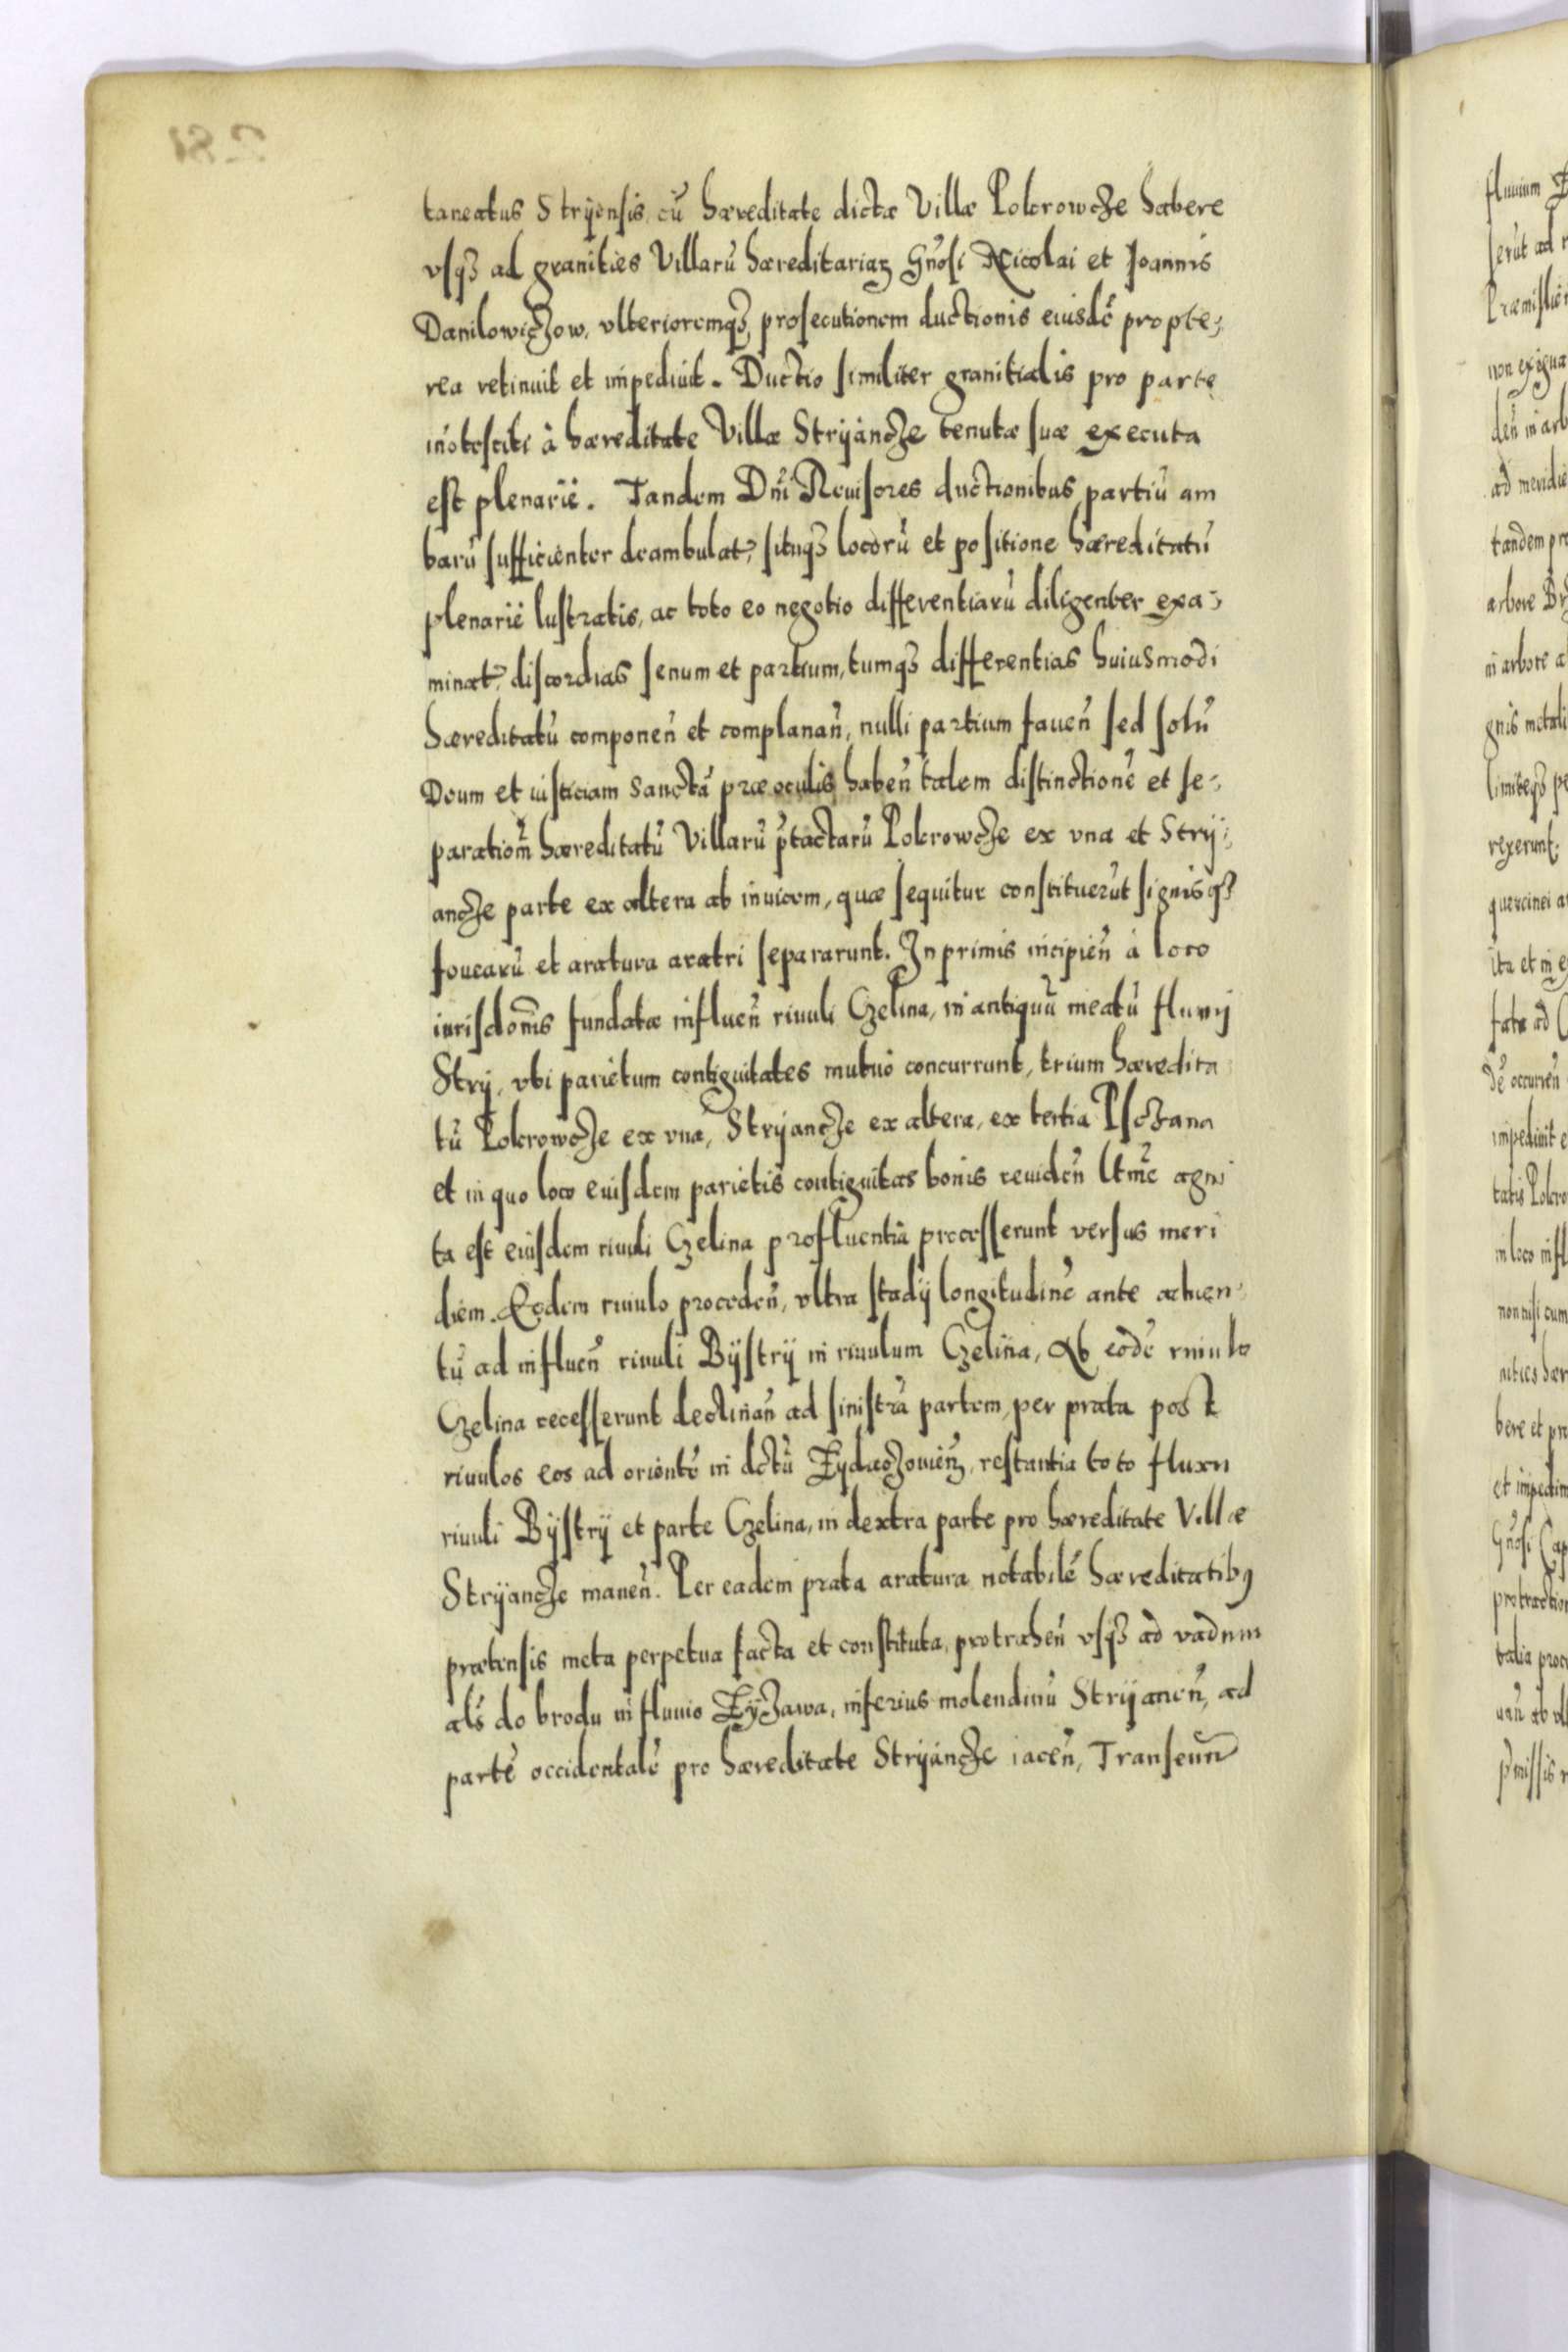 taneatus Strÿensis, cū hæreditate dictæ Villæ Pokrowcze habere
vsqȝ ad granities Villarū hæreditariaȝ Gn̄osi Nicolai et Joannis
Daniłowiczow, vlterioremqȝ, prosecutionem ductionis eiusdē propte,
rea retinuit et impediuit. Ductio similiter granitialis pro parte
in̄otesciti à hæreditate Villæ Strÿancze tenutæ suæ executa
est plenariè. Tandem Dn̄i Reuisores ductionibus partiū am
barū sufficienter deambulat, sitūqȝ locorū et positione hæreditatū
plenariè lustratis, ac toto eo negotio differentiarū diligenter exa,
minat, discordias senum et partium, tumqȝ differentias huiusmodi
hæreditatū componen̄ et complanan̄, nulli partium fauen̄ sed solū
Deum et iusticiam sanctā præ oculis haben̄ talem distinctionē et se,
paratiom̄ hæreditatū Villarū p̄tactarū Pokrowcze ex vna et Strÿ,
ancze parte ex altera ab inuicem, quæ sequitur constituerūt signisqȝ
foueārū et aratura aratri separarunt. In primis incipien̄ à loco
iurisdom̄s fundatæ influen̄ riuuli Czelina, in antiquū meatū fluuij
Strÿ, vbi parietum contiguitates mutuo concurrunt, trium hæredita
tū Pokrowcze ex vna, Strÿancze ex altera, ex tertia Psczana
et in quo loco eiusdem parietis contiguitas bonis reuiden̄ ltm̄e agni
ta est eiusdem riuuli Czelina profluentia processerunt versus meri
diem. Eodem riuulo proceden̄, vltra stadÿ longitudinē ante aduen,
tū ad influen̄ riuuli Bÿstrÿ in riuulum Czelina, Ab eodē riuulo
Czelina recesserunt declinan̄ ad sinistrā partem, per prata post
riuulos eos ad orientē in dctū Zydaczouienȝ, restantia toto fluxu
riuuli Bÿstrÿ et parte Czelina, in dextra parte pro hæreditate Villæ
Strÿancze manen̄. Per eadem prata aratura notabilē hæreditatibꝯ
prætensis meta perpetua facta et constituta, protrahen̄ vsqȝ ad vadum
als̄ do brodu in fluuio Zÿzawa, inferius molendinū Strÿanen̄, ad
partē occidentalē pro hæreditate Strÿancze iacen̄, Transeun̄